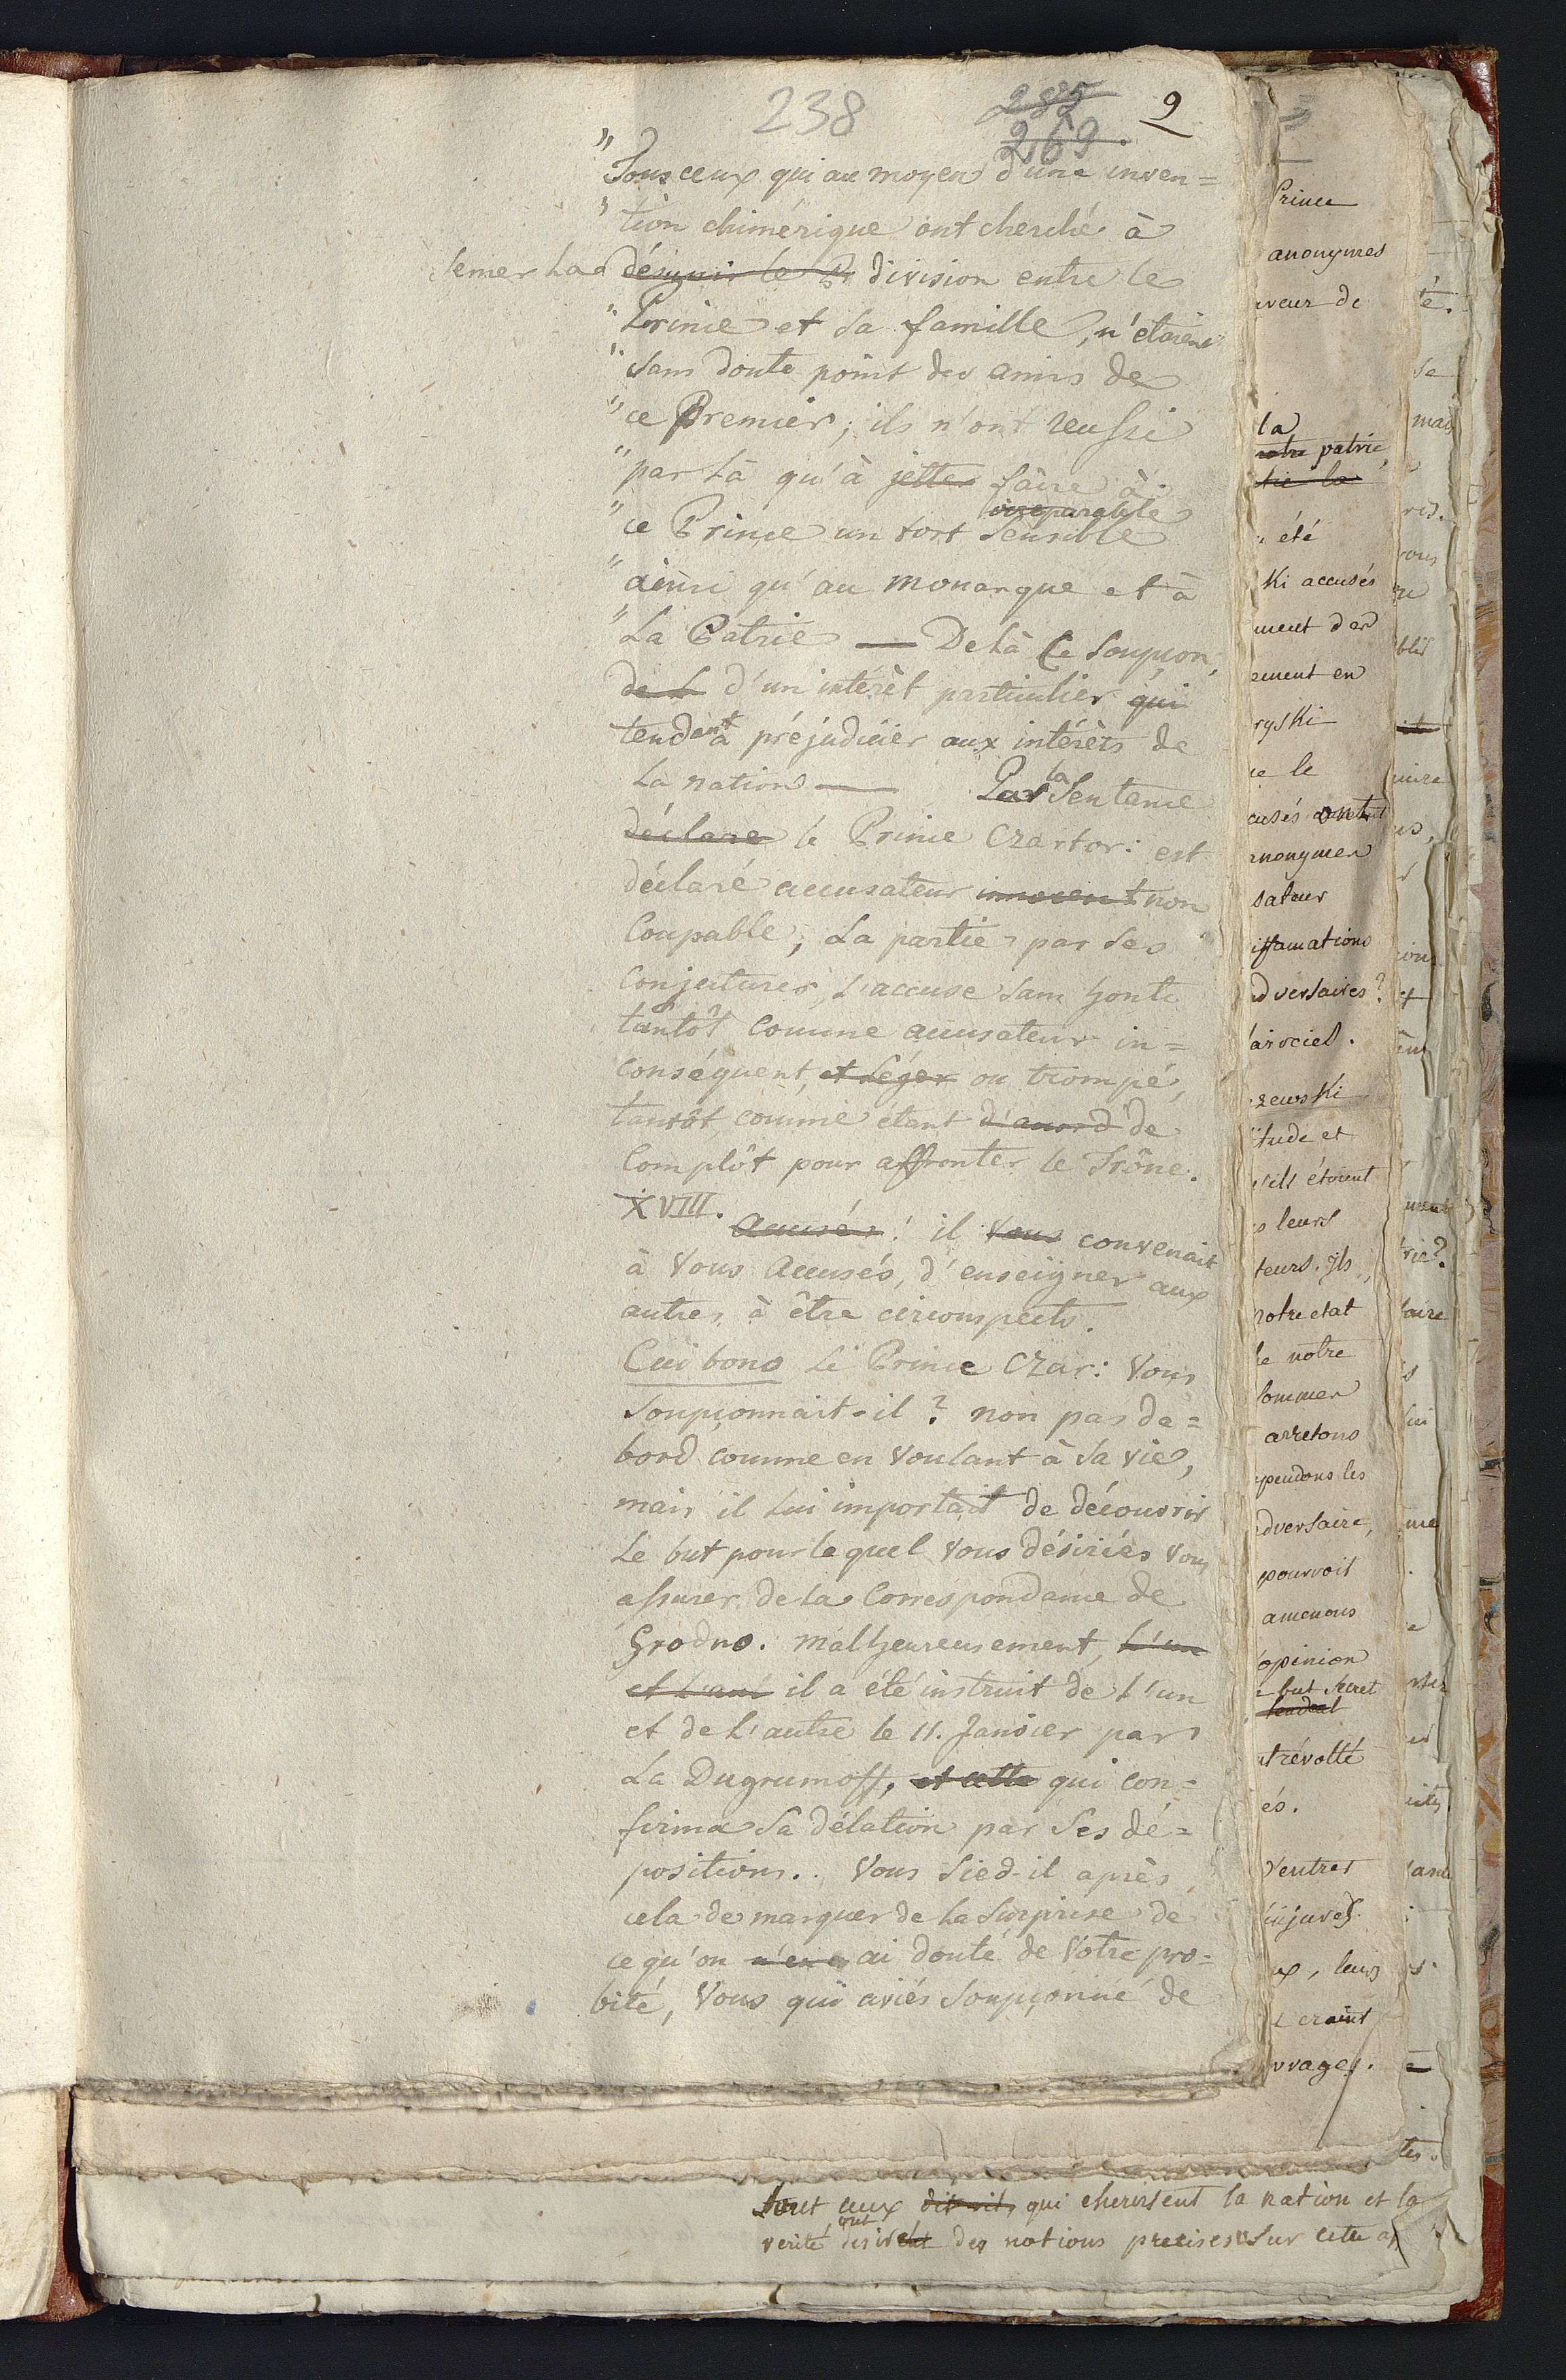 238 285 9
269.
" Tous ceux qui au moyen d'une inven=
" tion chimerique ont cherché à
semer la désunir le Pr division entre le
" Prince et sa famille, n'etoient
" sans doute point des amis de
" ce Premier; ils n'ont reussi
" par là qu'à jetter faire à
irreparable
" ce Prince un tort sensible
" ainsi qu'au monarque et à
" La Patrie — De là le soupçon,
de L d'un intérèt particulier qui
tendant à préjudicier aux intérèts de
La nation — Par la Sentence
déclare le Prince Czartor: est
déclaré accusateur innocent non
Coupable; La partie par ses
Conjectures, l'accuse sans honte
tantôt comme accusateur in=
conséquent, et léger ou trompé,
tantôt comme étant d'accord de
Complôt pour affronter le Trône.
XVIII. Accusés! il vous convenait
à Vous Accusés, d'enseigner aux
autres à être circonspects.
Cui bono le Prince Czar: Vous
soupçonnait-il? non pas da=
bord comme en voulant à sa vie,
mais il lui importait de découvrir
Le but pour lequel vous désiriés vous
assurer de la Correspondance de
Grodno. malheureusement, L'un
et l'aut il a été instruit de l'un
et de L'autre le 11. Janvier par
La Dugrumoff, et cette qui con=
firma sa délation par ses dé=
positions.. Vous sied-il après
cela de marquer de la surprise de
ce qu'on n'en ai douté de Votre pro=
bité, Vous qui aviés soupçonné de
Prince
anonymes
aveur de
la
notre patrie,
tie la
été
ki accusés
ment des
ement en
ryski
ue le
cusés ont
anonymes
sateur
iffamations
adversaires?
zewski
itude et
s'ils étoient
s leurs
teurs. Ils
notre etat
de notre
sommes
arretons
pendons les
adversaire,
pourroit
amenons
opinion
but secret
tendent
révolté
és.
d'entrer
injures.
ux, leurs
craint
uvrages.
té.
se
mais
vous
ire
tes.
ceux qui cherissent la nation et la
verité ont des notions precises sur cette